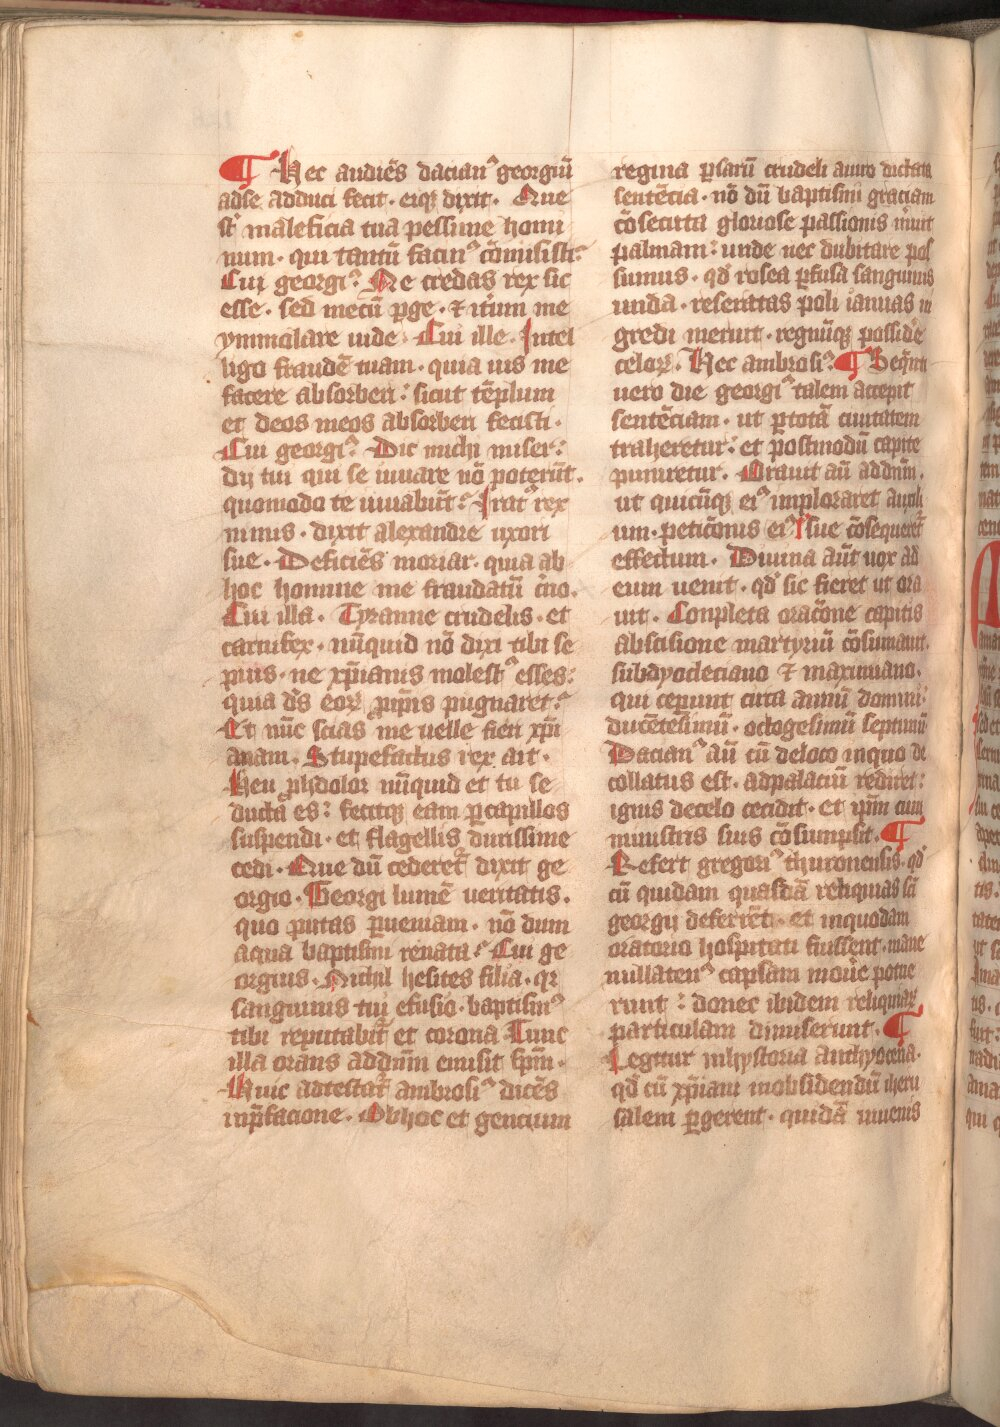 ¶ Hec audiẽs dacianꝰ georgiũ
adse adduci fecit · eiqꝫ dixit · Que
st̾ maleficia tua pessime homi
num · qui tantũ facinꝰ cõmisisti?
Cui georgiꝰ Ne credas rex sic
esse · sed mecũ ꝑge · ⁊ itͥum me
ymmolare uide · Cui ille · Intel
ligo fraudẽ tuam · quia uis me
facere absorberi : sicut tẽplum
et deos meos absorberi fecisti ·
Cui georgiꝰ Dic michi miser :
dij tui qui se iuuare nõ poterũt ·
quomodo te iuuabũt ? Iratꝰ rex
nimis · dixit alexandre uxori
sue · Deficiẽs moriar · quia ab
hoc homine me fraudatũ c̾no ·
Cui illa · Tyranne crudelis · et
carnifex · nũquid nõ dixi tibi se
pius · ne xp̃ianis molestꝰ esses :
quia dš eoꝝ ꝓ ip̃is pugnaret ?
Et nũc scias me uelle fieri xp̃i
anam · Stupefactus rex ait ·
Heu ꝓhdolor nũquid et tu se
ducta es : fecitqꝫ eam ꝑ capillos
suspendi · et flagellis durissime
cedi · Que dũ cederet̾ dixit ge
orgio · Georgi lumẽ ueritatis ·
quo putas ꝑueniam · nõ dum
aqua baptismi renata ? Cui ge
orgius · Nichil hesites filia · qr
sanguinis tui efusio · baptismꝰ
tibi reputabit̾ et corona Tunc
illa orans addñm emisit sp̃m ·
Huic adtestat̾ ambrosiꝰ dicẽs
inp̃facione · Obhoc et gencium
regina ꝑsarũ crudeli auiro dictata
sentẽcia · nõ dũ baptismi graciam
cõsecuta gloriose passionis m̾uit
palmam : unde nec dubitare pos
sumus · qd̾ rosea ꝑfusa sanguinis
unda · reseratas poli ianuas in
gredi meruit · regnũqꝫ posside̾
celoꝝ · Hec ambrosiꝰ ¶ Seq̃nti
uero die georgiꝰ talem accepit
sentẽciam · ut ꝑ totã ciuitatem
traheretur : et postmodũ capite
puniretur · Orauit aũ addñm ·
ut quicũqꝫ eiꝰ imploraret auxili
um · peticõnis eiꝰ sue cõsequeret̾
effectum · Diuina aũt uox ad
eum uenit · qd̾ sic fieret ut ora
uit · Conpleta oracõne capitis
abscisione martyriũ cõsumauit ·
subdyocleciano ⁊ maximiano ·
qui ceperunt circa annũ domini ·
ducẽtesimũ · octogesimũ septimũ
Dacianꝰ aũ cũ deloco inquo de
collatus est · adpalaciũ rediret :
ignis decelo cecidit · et ip̃m cum
ministris suis cõsumpsit · ¶
Refert gregoriꝰ thuronensis · qd̾
cũ quidam quasdã reliquias sc̃i
georgij deferrẽt · et inquodam
oratorio hospitati fuissent · mane
nullatenꝰ capsam moue̾ potue
runt : donec ibidem reliquiaꝝ
particulam dimiserunt · ¶
Legitur inhystoria anthyocena ·
qd̾ cũ xp̃iani inobsidendũ iheru
salem ꝑgerent · quidã iuuenis